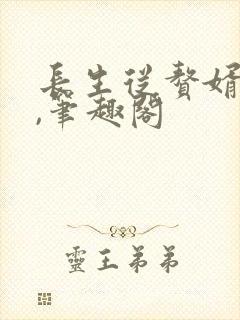 長生從贅婿
,筆趣閣
靈王弟弟